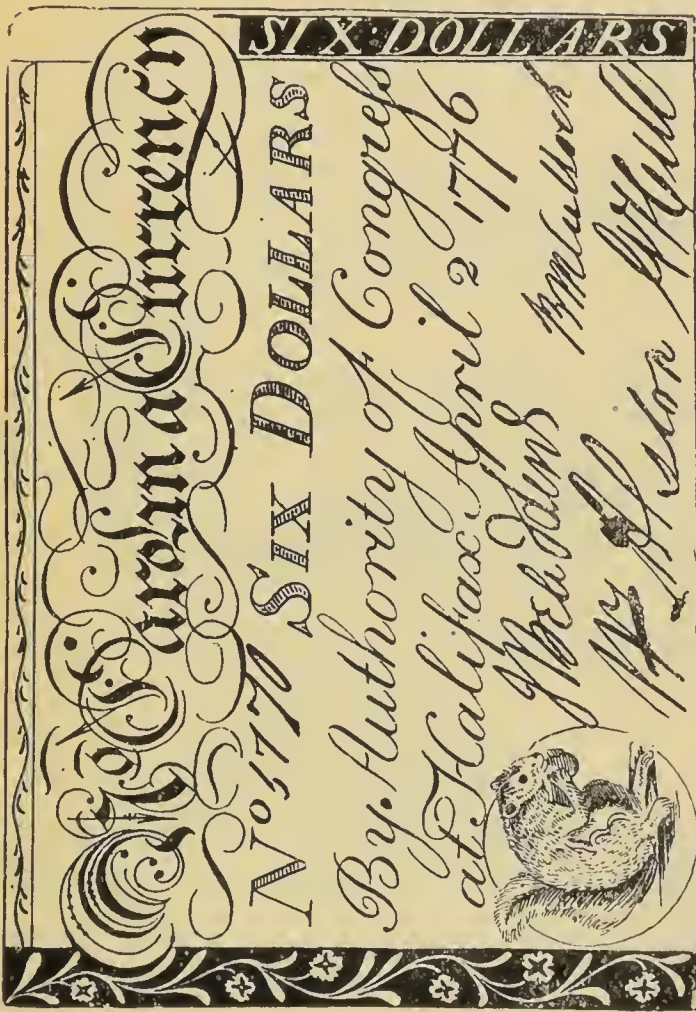 SIX DOLLARS
No Carolina Currency
No 5770 SIX DOLLARS
By Authority of Congreſs
at Halifax April 2 1776
Wm Alston